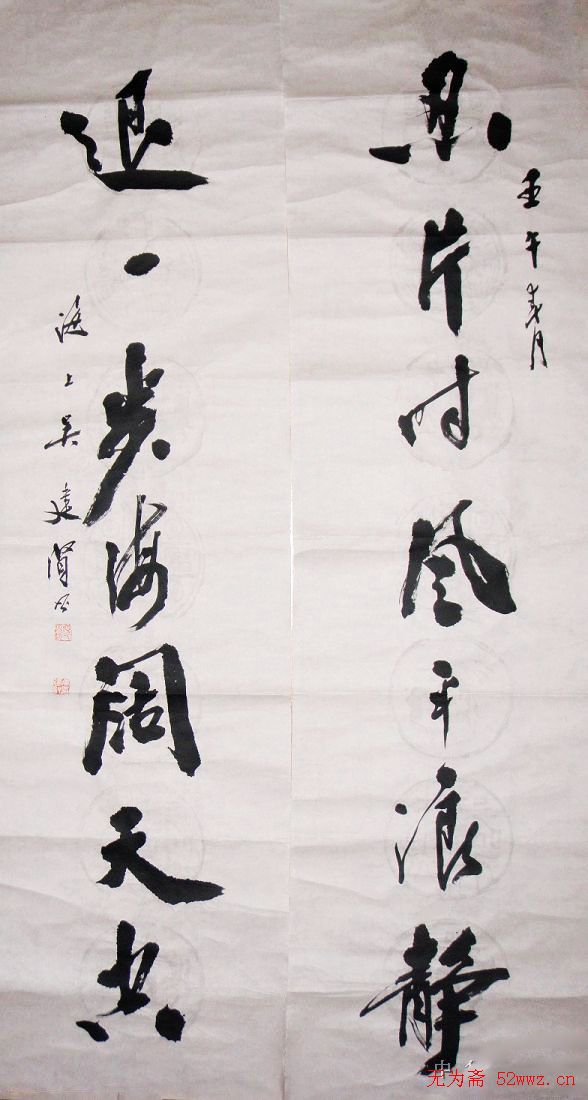 壬午春月
忍片时风平浪静
退一步海阔天空
滬上吴建贤书
中
无为斋 52wwz.cn